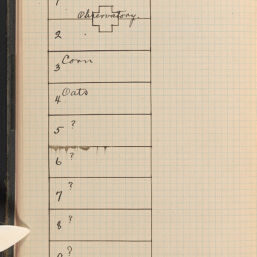 1
Observatory.
2
3 Corn
4 Oats
5 ?
6 ?
7 ?
8 ?
9 ?